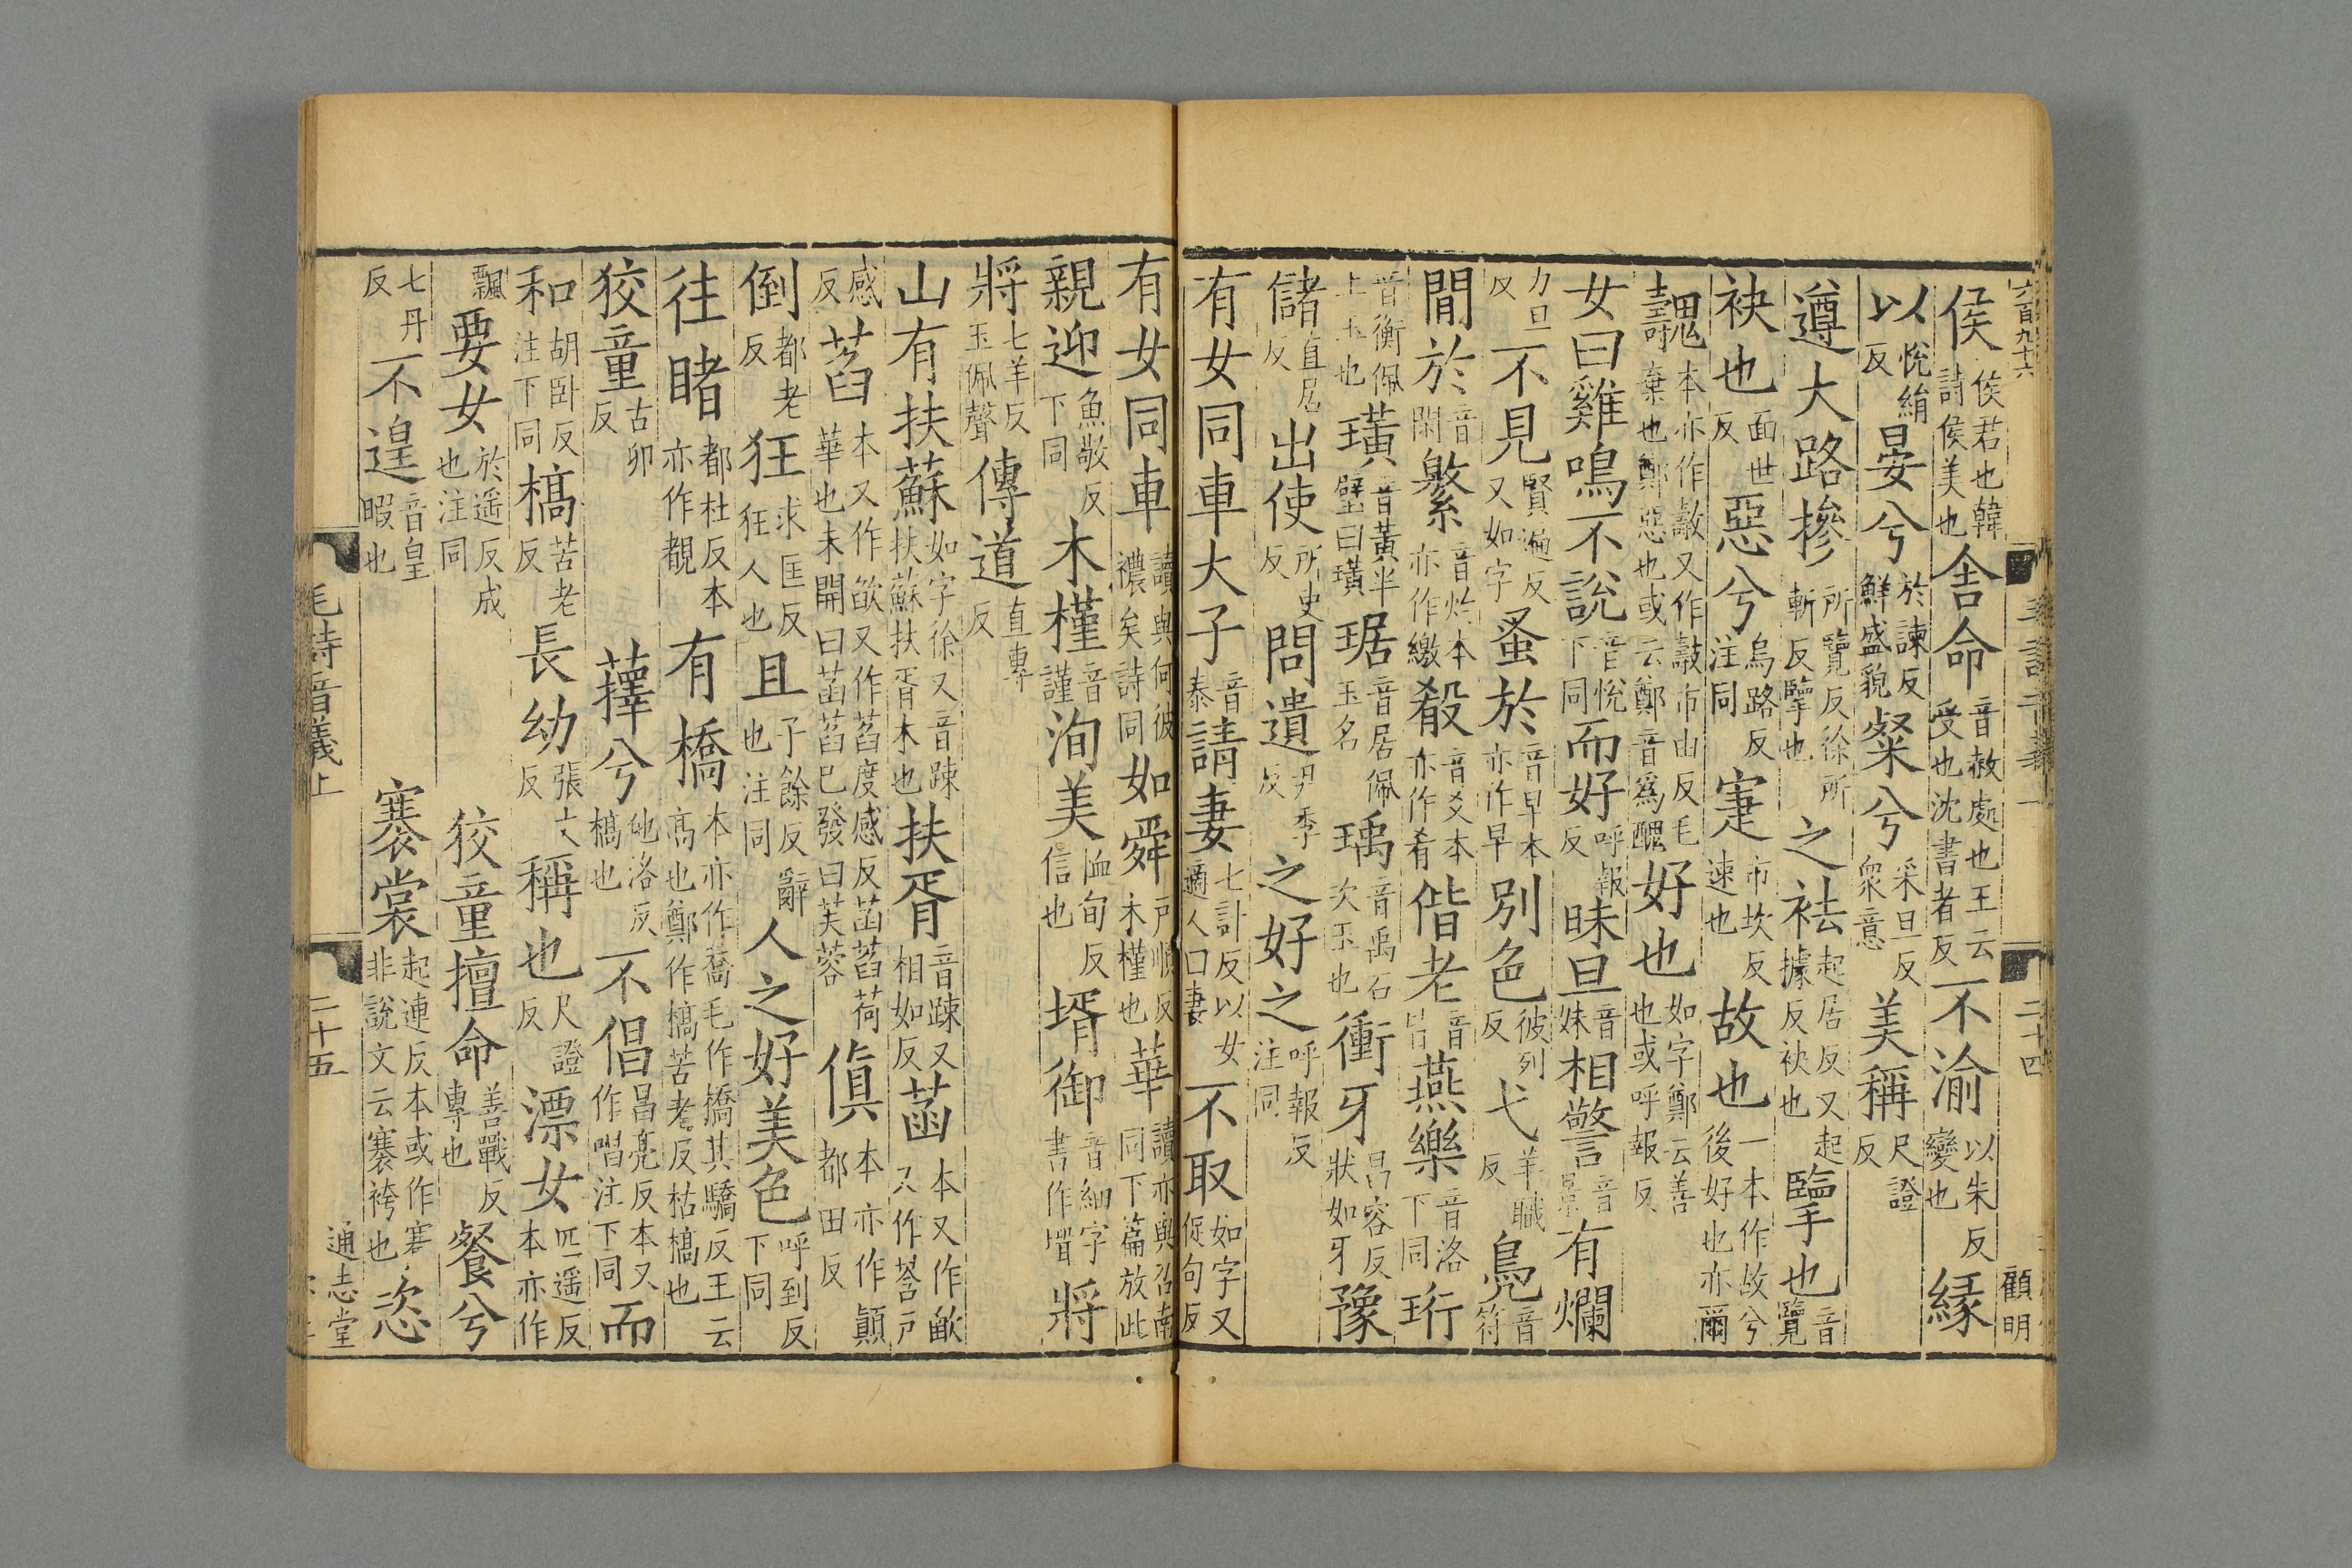 六百九十六
毛詩音義上
二十四
顧明
侯侯君也韓詩侯美也舍命音赦處也王云受也沈書者反不渝以朱反變也緣
以悅絹反晏兮於諫反鮮盛貌粲兮采旦反衆意美稱尺證反
遵大路摻所覽反徐所斬反擥也之袪起居反又起據反袂也擥也音覽
袂也面世反惡兮烏路反注同寁市坎反速也故也一本作故兮後好也亦爾
魗本亦作𣀳又作㱽市由反毛棄也鄭惡也或云鄭音爲醜好也如字鄭云善也或呼報反
女曰雞鳴不說音悅下同而好呼報反昧旦音妹相警音景有爛
力旦反不見賢遍反又如字蚤於音早本亦作早別色彼列反弋羊職反鳬音符
閒於音閑繁音灼本亦作繳殽音爻本亦作肴偕老音皆燕樂音洛下同珩
音衡佩上玉也璜音黃半璧曰璜琚音居佩玉名瑀音禹石次玉也衝牙昌容反狀如牙豫
儲直居反出使所吏反問遺尹季反之好之呼報反注同
有女同車大子音泰請妻七計反以女適人曰妻不取如字又促句反
有女同車讀與何彼襛矣詩同如舜尸順反木槿也華讀亦與召南同下篇放此
親迎魚敬反下同木槿音謹洵美恤旬反信也壻御音細字書作㙛將
將七羊反玉佩聲傳道直專反
山有扶蘇如字徐又音疎扶蘇扶胥木也扶胥音疎又相如反菡本又作㽉又作莟戶
感反萏本又作欿又作萏度感反菡萏荷華也未開曰菡萏已發曰芙蓉傎本亦作顚都田反
倒都老反狂求匡反狂人也且子餘反辭也注同人之好美色呼到反下同
往睹都杜反本亦作覩有橋本亦作喬毛作橋其驕反王云高也鄭作槁苦老反枯槁也
狡童古卯反蘀兮他洛反槁也不倡昌亮反本又作唱注下同而
和胡臥反注下同槁苦老反長幼張丈反稱也尺證反漂女匹遥反本亦作
飄要女於遥反成也注同狡童擅命善戰反專也餐兮
七丹反不遑音皇暇也褰裳起連反本或作騫非說文云褰袴也恣
毛詩音義上
二十五
通志堂